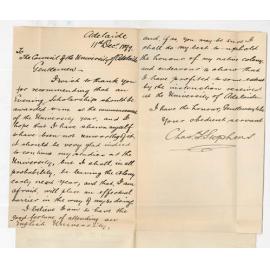 Adelaide
11th Dec. 1894.
To
The Council of the University of Adelaide
Gentlemen
I wish to thank you
for recommending that an
Evening Scholarship should be
awarded me at the commencement
of the University year, and I
hope that I have shown myself
worthy not unworthy of it
I should be very glad indeed
to continue my studies at the
University, but I shall, in all
probability, be leaving the Colony
early next year, and that, I am
afraid, will place an effectual
barrier in the way of my doing so
I believe I am to have the
good fortune of attending an
English University,
and if, as you may be sure I
shall do my best to uphold
the honour of my native colony,
and endeavour to show that
I have profited to some extent
by the instruction received
at the University of Adelaide.
I have the honour, Gentlemen, to be
Your obedient servant
Chas. Stephens